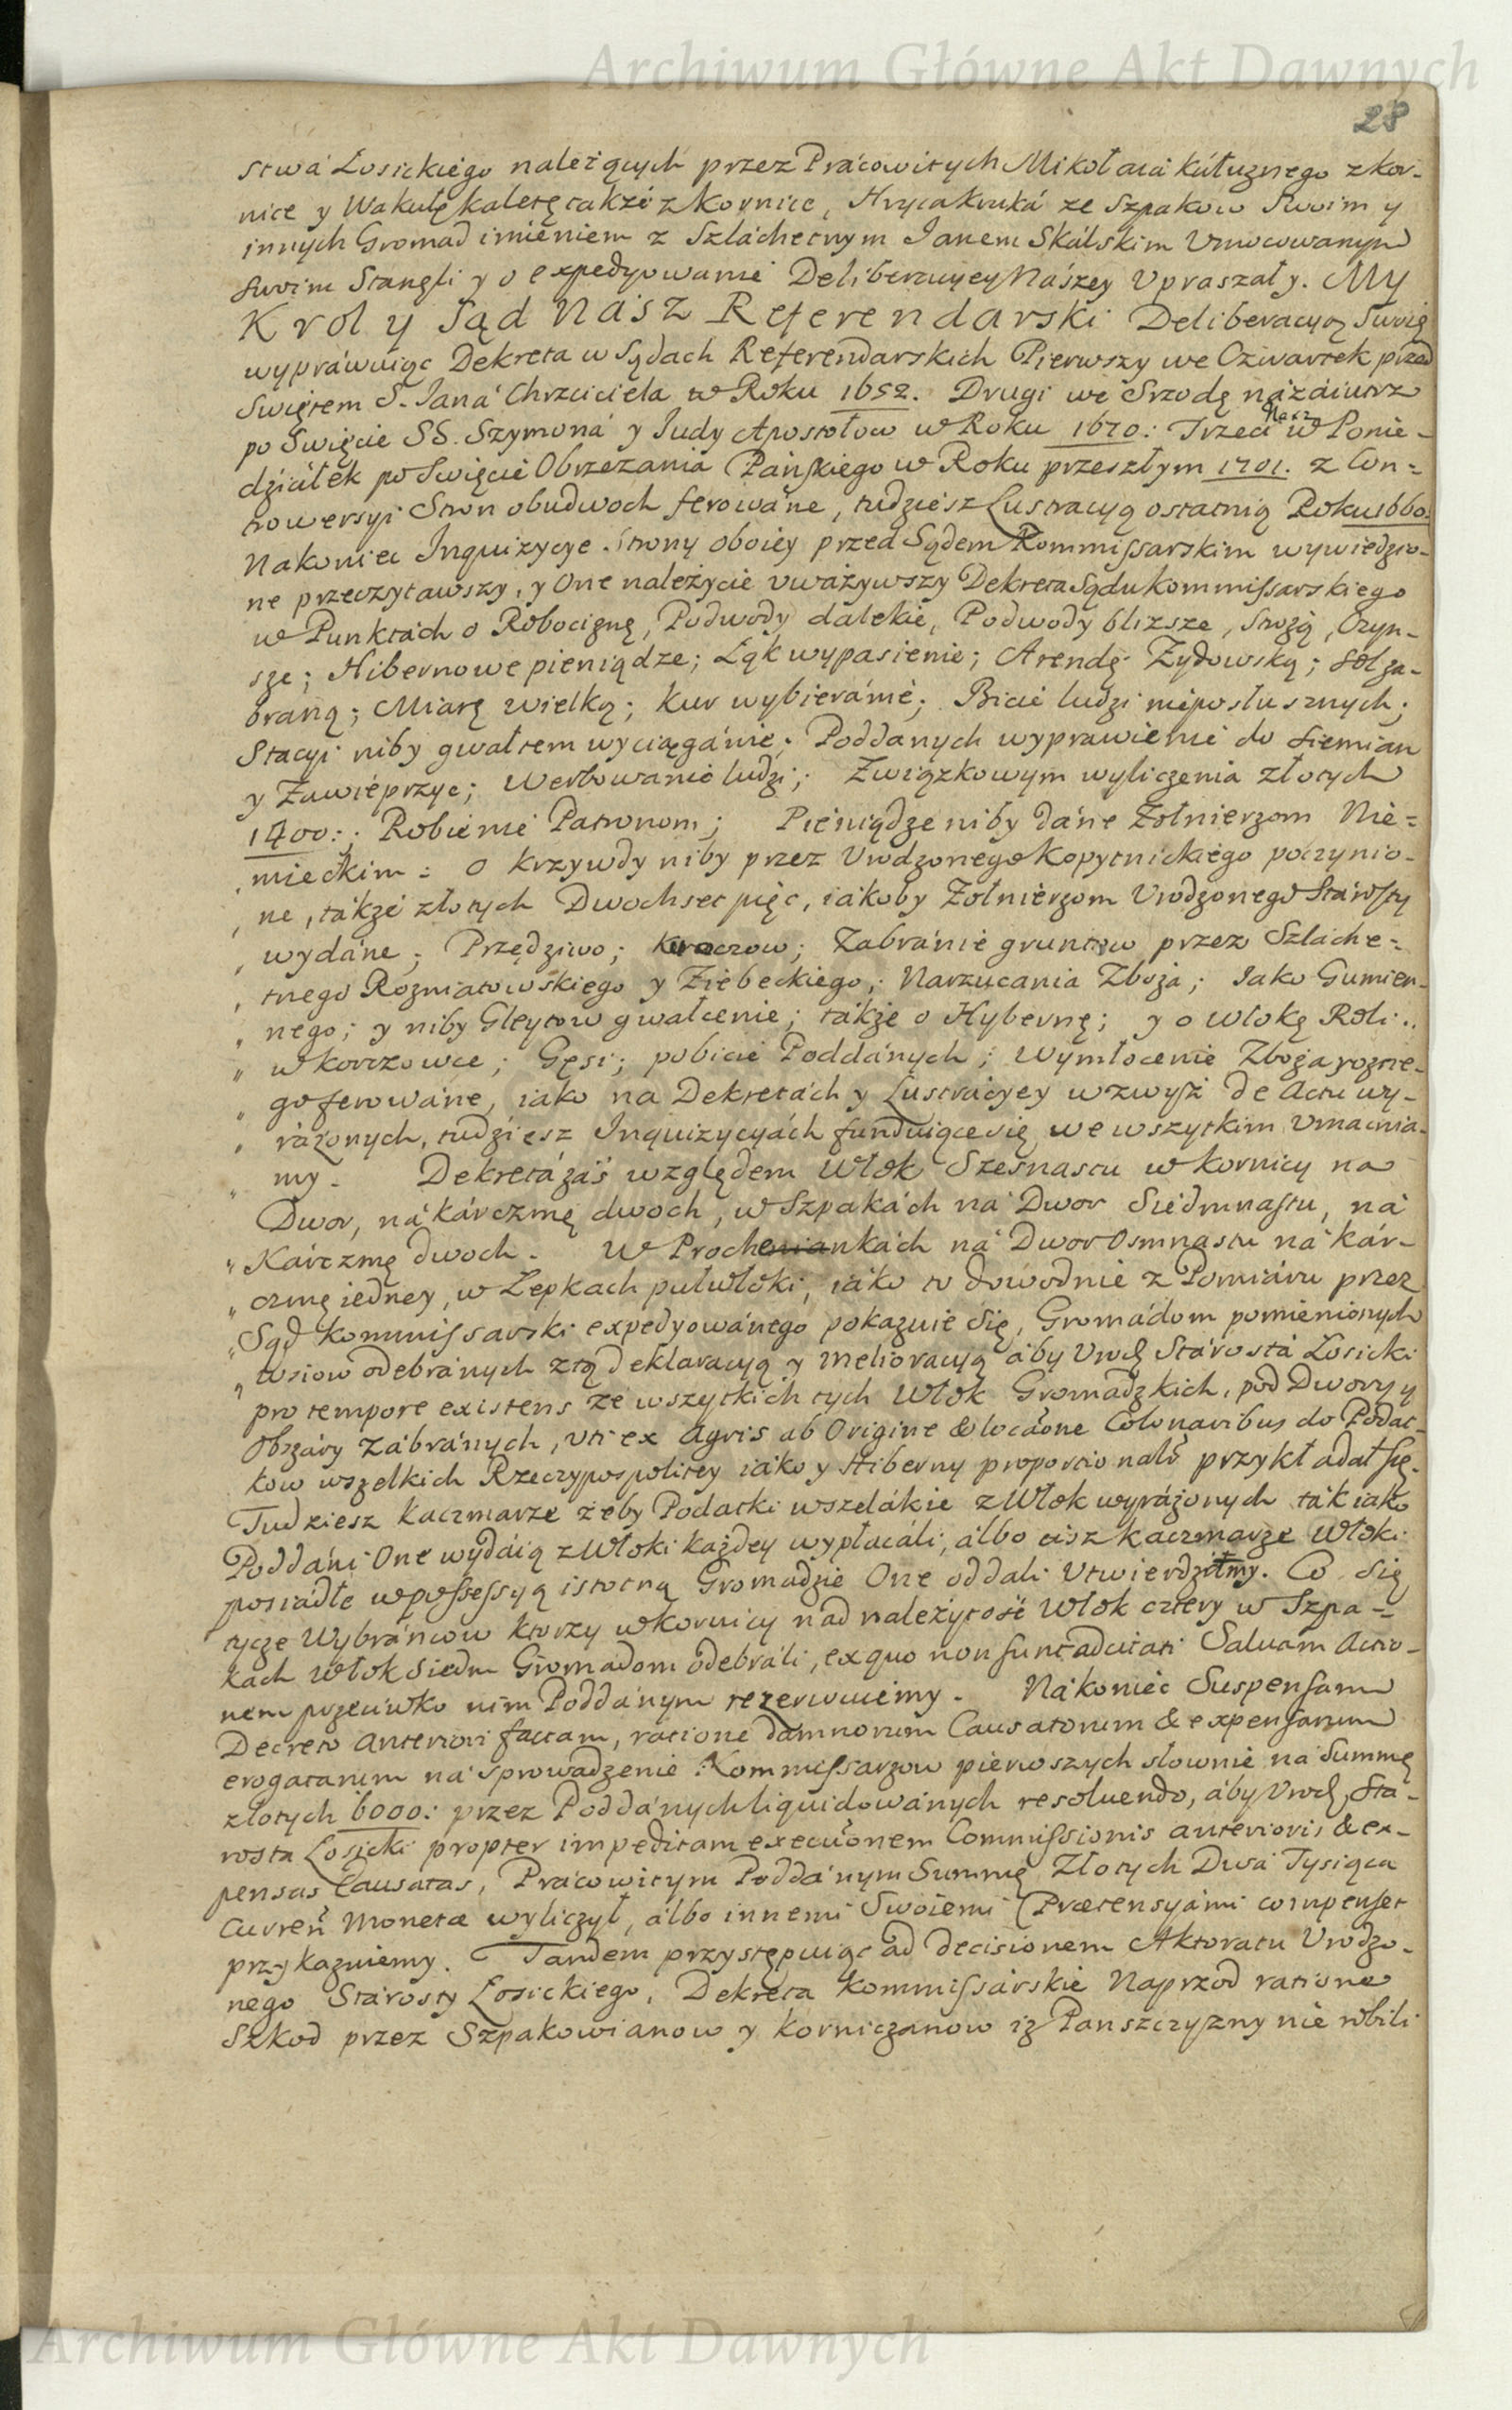 Archiwum Główne Akt Dawnych
28
stwa Łosickiego należących przez Pracowitych Mikołaia Kułużnego z Kor-
nice y Wakułę Kaletę także z Kornice, Hrycá Kruká ze Szpakow Swoim y
innych Gromad imieniem z Szláchetnym Janem Skálskim Umocowanym
Swoim Stangli y o expedyowanie Deliberacyey Nászey Upraszały. My
Krol y Sąd Nász Referendarski Deliberacyą Swoię
wypráwuiąc Dekreta w Sądach Referendarskich Pierwszy we Czwartek przed
Swiętem S. Janá Chrzciciela w Roku 1652. Drugi we Srzodę názaiutrz
po Swięcie SS. Szymoná y Judy Apostołow w Roku 1670: Trzeci Nasz w Ponie-
dziáłek po Swięcie Obrzezania Páńskiego w Roku przeszłym 1701. z Con-
trowersyi Stron obudwoch ferowáne, tudziesz Lustracyą ostatnią Roku 1660.
Nakoniec Inquizycye Strony oboiey przed Sądem Kommissarskim wywiedzio-
ne przeczytawszy, y One należycie uważywszy Dekreta Sądu Kommissarskiego
w Punktách o Robociznę, Podwody dalekie, Podwody blizsze, Stróżą, Czyn-
sze; Hibernowe pieniądze; Łąk wypasienie; Arendę Zydowską; Sol za-
braną; Miarę wielką; Kur wybieránie; Bicie ludzi nieposłusznych;
Stacyi niby gwałtem wyciągánie; Poddanych wyprawienie do Siemian
y Zawieprzyc; Werbowanie ludzi; Związkowym wyliczenia złotych
1400:; Robienie Patronom; Pieniądze niby dáne Zołnierzom Nie-
mieckim: o krzywdy niby przez Urodzonego Kopytnickiego poczynio-
ne, tákże złotych Dwochset pięć, iákoby Zołnierzom Urodzonego Stárosty
wydáne; Przędziwo; Zabránie gruntow przez Szlache-
tnego Rozniatowskiego y Ziebeckiego; Narzucania Zboża; Jako Gumien-
nego; y niby Gleytow gwałcenie; tákże o Hybernę; y o Włokę Roli
w Korczowce; Gęsi; pobicie Poddánych; Wymłocenie Zboża rozne-
go ferowáne, iáko na Dekretách y Lustrácyey wzwysz de Actu wy-
rażonych, tudziesz Inquizycyách funduiące się we wszytkim Umacnia-
my. Dekretá záś względem Włok Szesnastu w Kornicy na
Dwor, ná kárczmę dwoch, w Szpakách ná Dwor Siedmnastu, ná
Kárczmę dwoch. W Prochenkách ná Dwor Osmnastu ná kár-
czmę iedney, w Łepkach pułwłoki, iáko to dowodnie z Pomiáru przez
Sąd Kommissarski expedyowánego pokazuie Się, Gromádom pomienionych
wsiow odebránych z tą deklaracyą y melioracyą áby Urodz. Stárostá Łosicki
pro tempore existens ze wszytkich tych Włok Gromadzkich, pod Dwory y
Obszáry Zábránych, uti ex Agris ab Origine & locaõne Colonaribus do Podat-
kow wszelkich Rzeczypospolitey iáko y Hiberny proporcionalr przykładał się.
Tudziesz Kaczmarze żeby Podatki wszelákie z Włok wyráżonych ták iáko
Poddáni One wydáią z Włoki każdey wypłacáli, álbo cisz kaczmarze Włoki
posiadłe w possessyą istotną Gromadzie One oddali Utwierdziłmy. Co się
tycze Wybráncow ktorzy w Kornicy nád należytość Włok cztery w Szpa-
kach Włok Siedm Gromadom odebráli, ex quo non sunt adcitati Salvam Actio-
nem przeciwko nim Poddánym rezerwuiemy. Nákoniec Suspensam
Decreto Anteriori factam, ratione damnorum Causatorum & expensarum
erogatarum ná sprowadzenie Kommissarzow pierwszych słownie ná Summę
złotych 6000: przez Poddánych liquidowánych resoluendo, áby Urodz. Sta-
rosta Łosicki propter impeditam execuõnem Commissionis anterioris & ex-
pensas Causatas, Prácowitym Poddánym Summę Złotych Dwá Tysiąca
Curren Monetæ wyliczył, álbo innemi Swoiemi Prætensyámi compenset
przykazuiemy. Tandem przystępuiąc ad decisionem Aktoratu Urodzo-
nego Stárosty Łosickiego, Dekreta Kommissárskie Naprzod ratione
Szkod przez Szpakowianow y Korniczanow iż Panszczyzny nie robili
Archiwum Główne Akt Dawnych